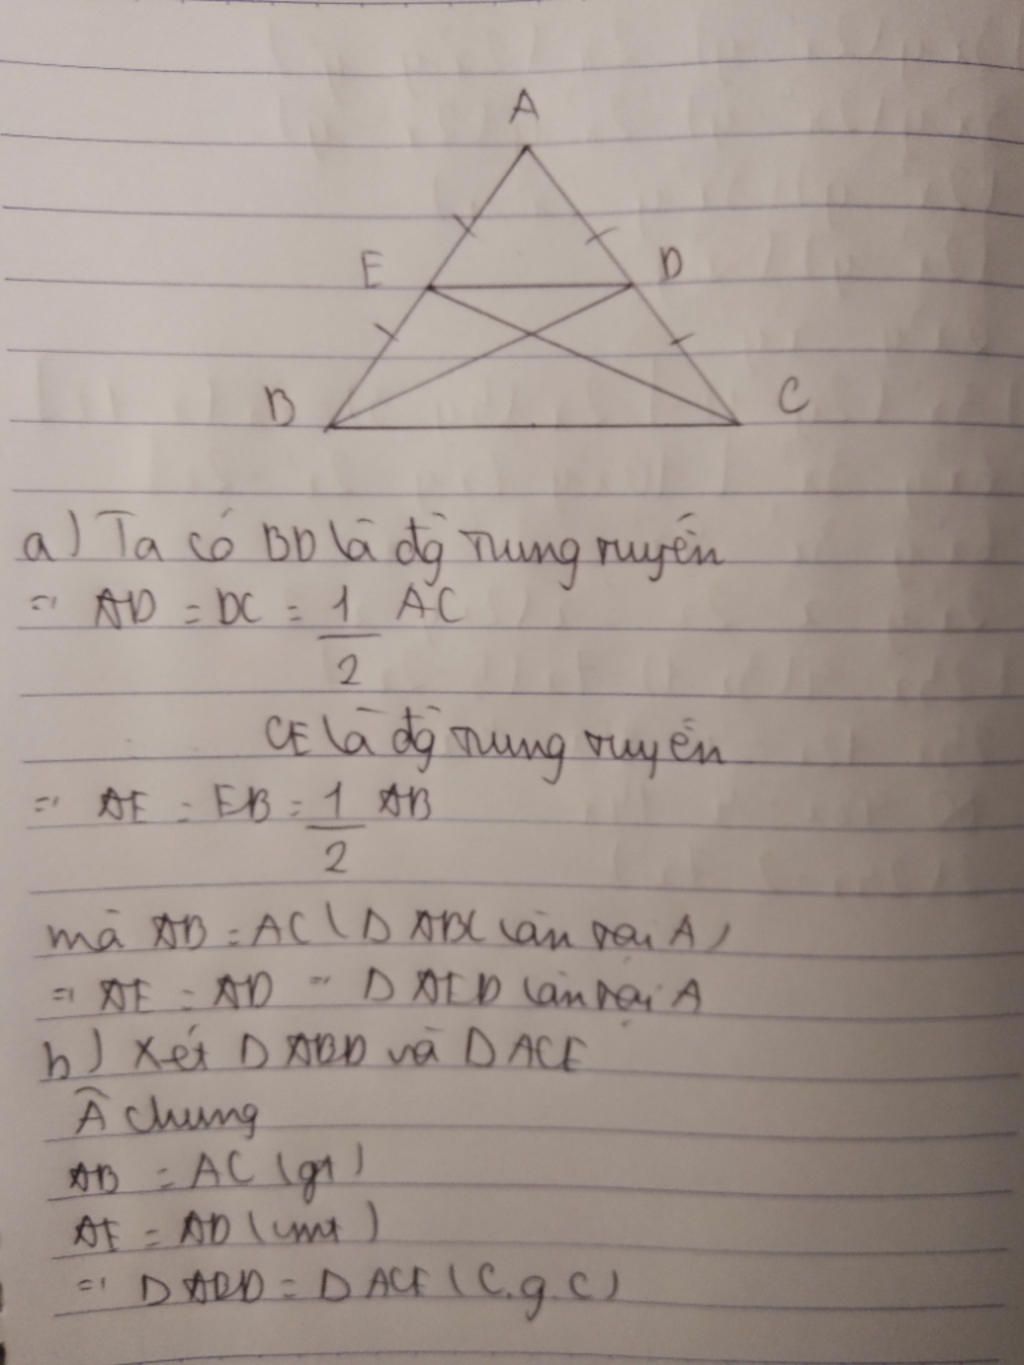 A
E D
B C
a) Ta có BD là đg trung tuyến
=> AD = DC = 1/2 AC
CE là đg trung tuyến
=> AE = EB = 1/2 AB
mà AB = AC (Δ ABC cân tại A)
=> AE = AD => Δ AED cân tại A
b) Xét Δ ABD và Δ ACE
Â chung
AB = AC (gt)
AE = AD (cmt)
=> Δ ABD = Δ ACE (c.g.c)